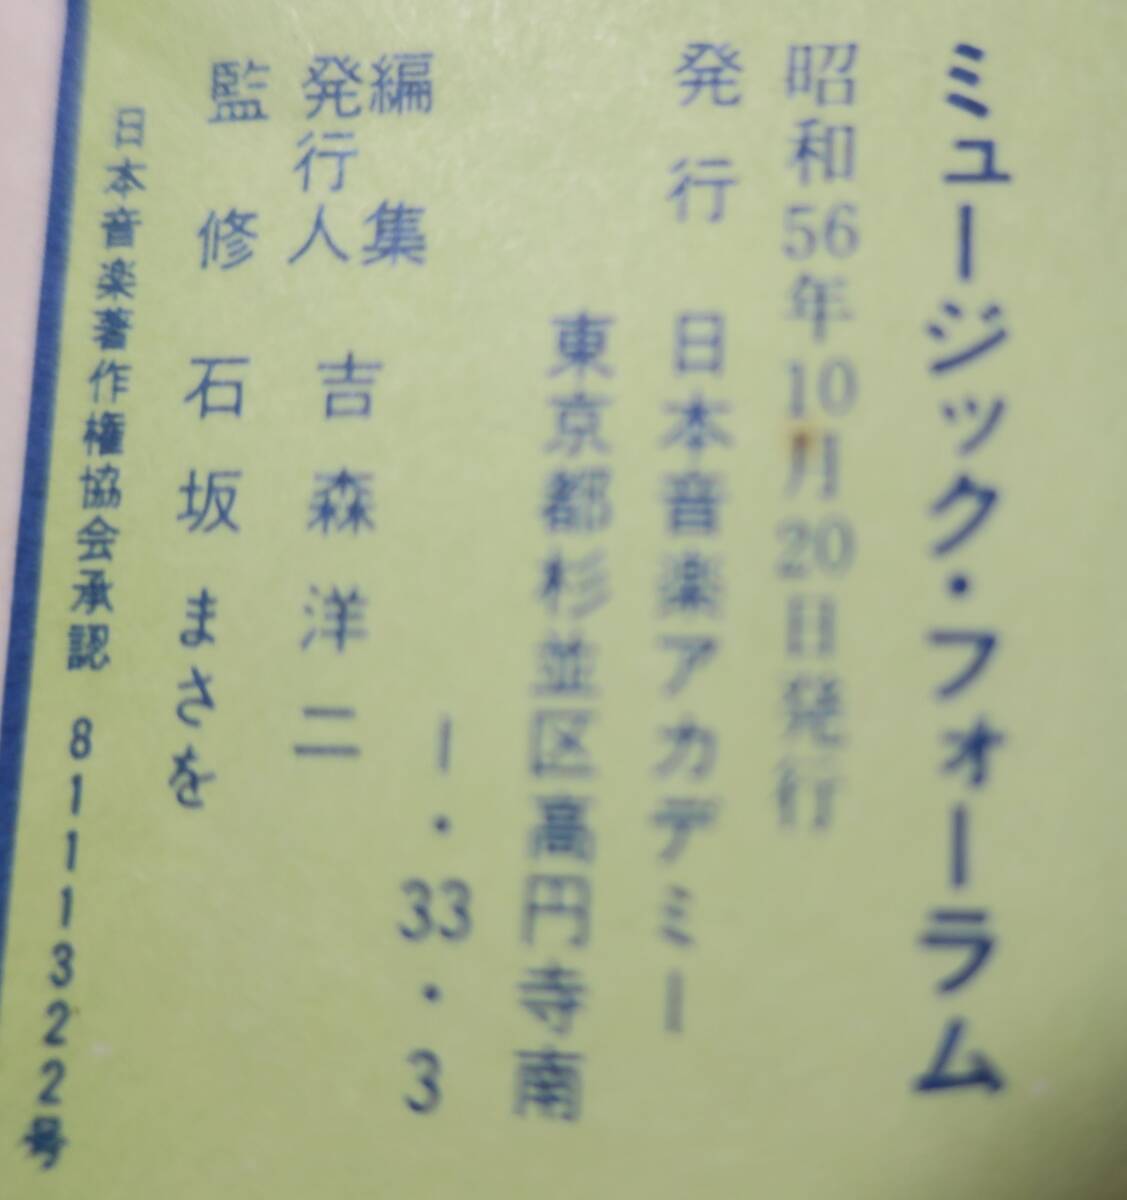 ミュージック・フォーラム
昭和56年10月20日発行
発行 日本音楽アカデミー
東京都杉並区高円寺南
1・33・3
編集
発行人 吉森洋二
監修 石坂まさを
日本音楽著作権協会承認 8111322号